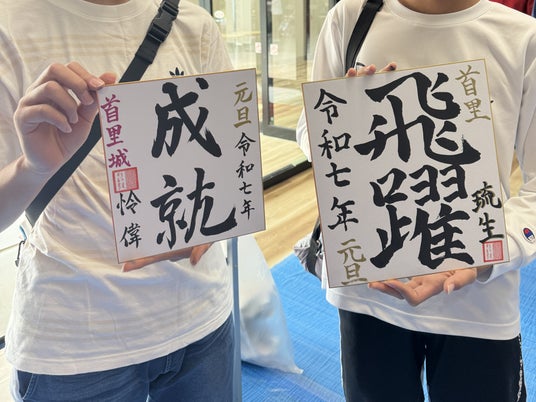 成就
元旦
令和七年
首里城
怜偉
飛躍
首里
琉生
令和七年
元旦